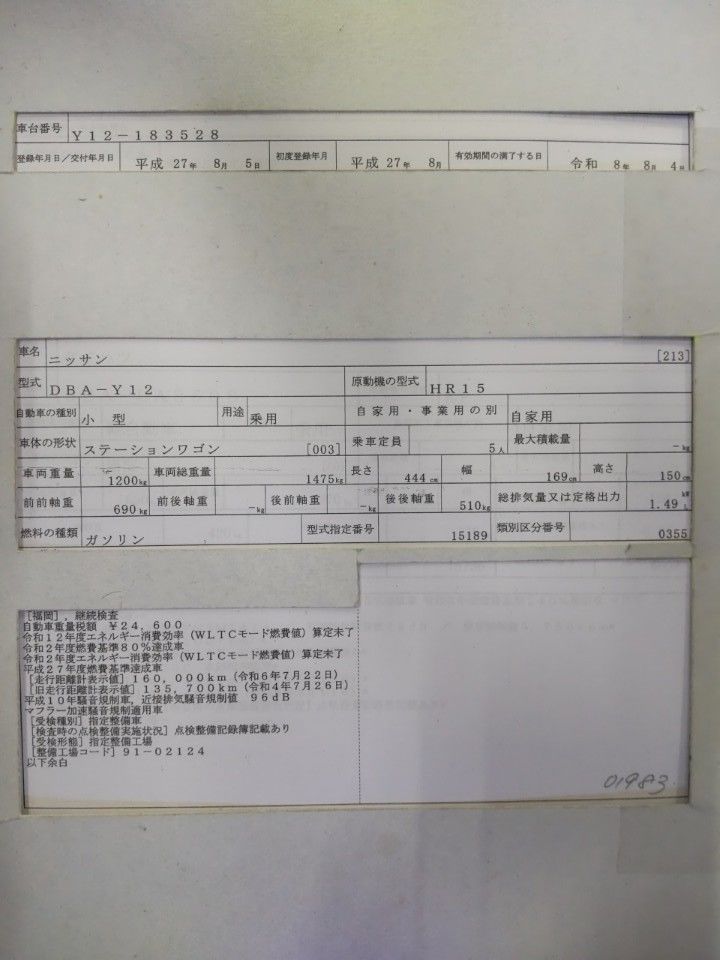 車台番号 Y12-183528
登録年月日/交付年月日 平成 27年 8月 5日 初度登録年月 平成 27年 8月 有効期間の満了する日 令和 8年 8月 4日
車名 ニッサン [213]
型式 DBA-Y12 原動機の型式 HR15
自動車の種別 小 型 用途 乗用 自家用・事業用の別 自家用
車体の形状 ステーションワゴン [003] 乗車定員 5人 最大積載量 -kg
車両重量 1200kg 車両総重量 1475kg 長さ 444cm 幅 169cm 高さ 150cm
前前軸重 690kg 前後軸重 -kg 後前軸重 -kg 後後軸重 510kg 総排気量又は定格出力 1.49 kW L
燃料の種類 ガソリン 型式指定番号 15189 類別区分番号 0355
[福岡],継続検査
自動車重量税額 ¥24,600
令和12年度エネルギー消費効率(WLTCモード燃費値)算定未了
令和2年度燃費基準80%達成車
令和2年度エネルギー消費効率(WLTCモード燃費値)算定未了
平成27年度燃費基準達成車
[走行距離計表示値]160,000km(令和6年7月22日)
[旧走行距離計表示値]135,700km(令和4年7月26日)
平成10年騒音規制車,近接排気騒音規制値 96dB
マフラー加速騒音規制適用車
[受検種別]指定整備車
[検査時の点検整備実施状況]点検整備記録簿記載あり
[受検形態]指定整備工場
[整備工場コード]91-02124
以下余白
01983